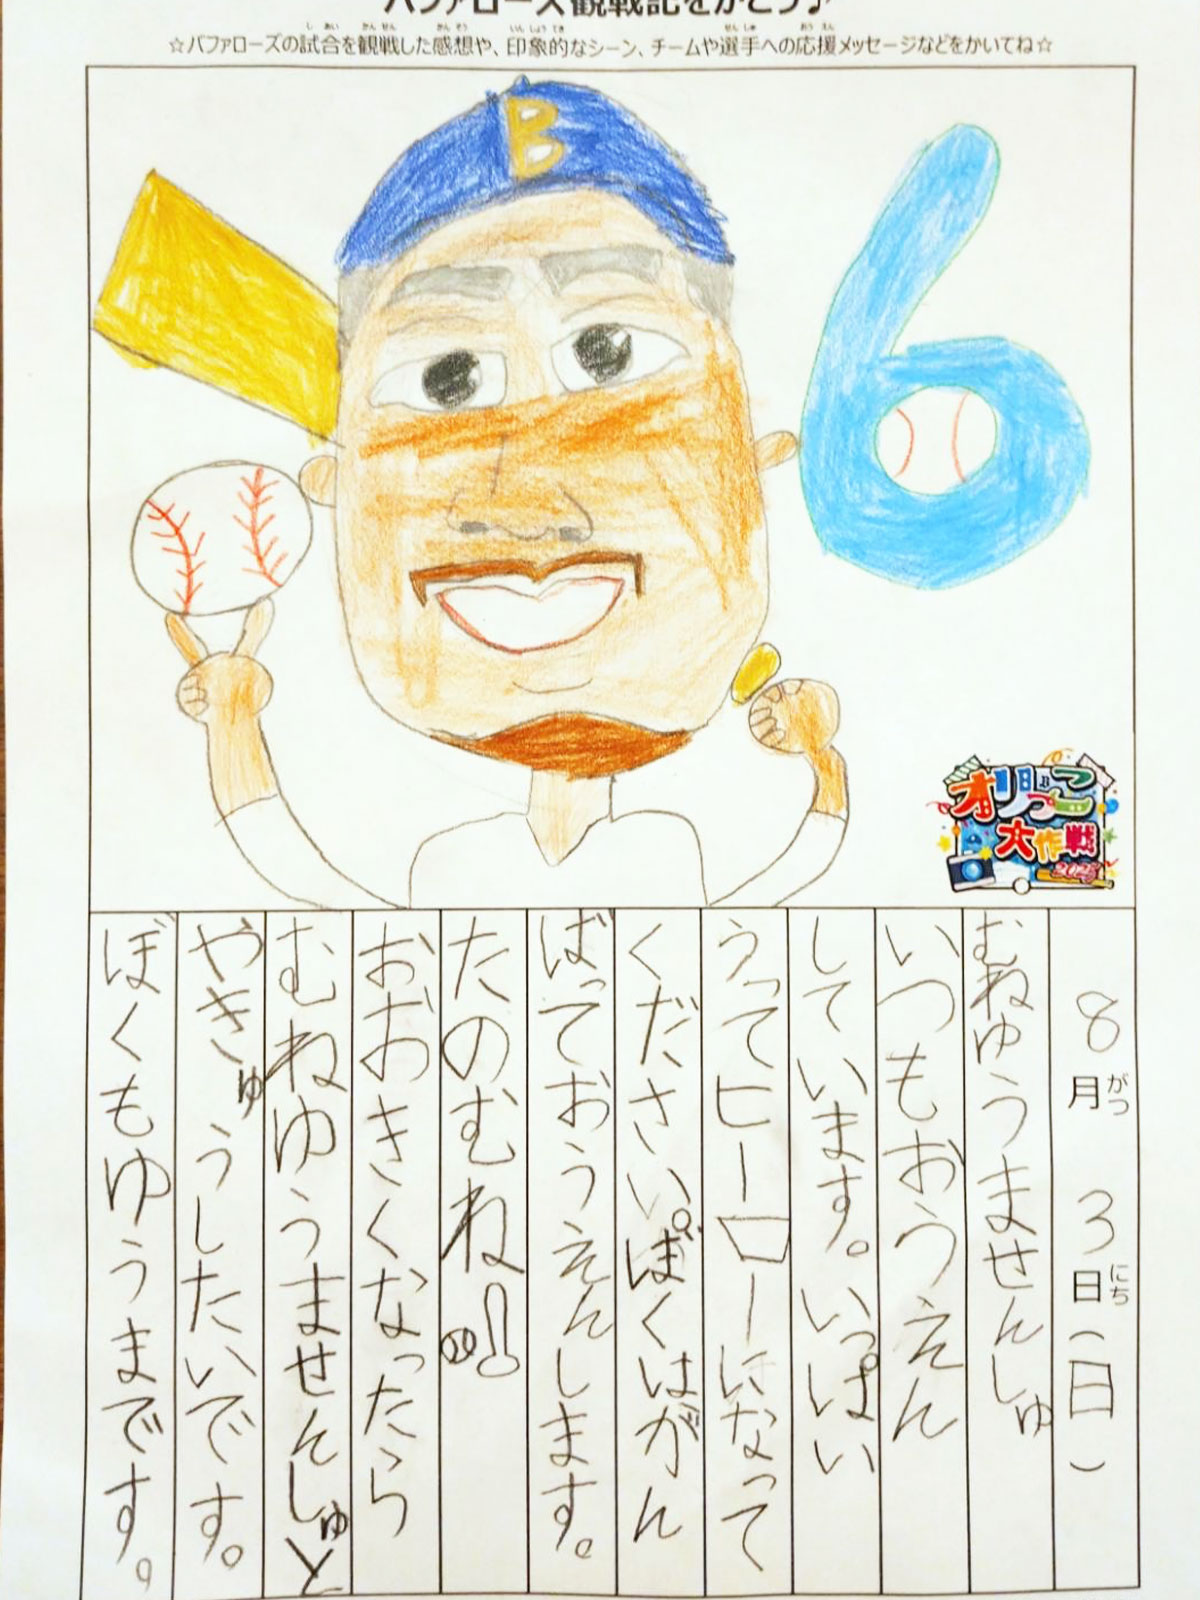 バファローズ観戦記をかこう♪
☆バファローズの試合を観戦した感想や、印象的なシーン、チームや選手への応援メッセージなどをかいてね☆
B
6
オリっこ
大作戦
2025
8月3日(日)
むねゆうませんしゅ
いつもおうえん
しています。いっぱい
うってヒーローになって
ください。ぼくはがん
ばっておうえんします。
たのむね
おおきくなったら
むねゆうませんしゅと
やきゅうしたいです。
ぼくもゆうまです。